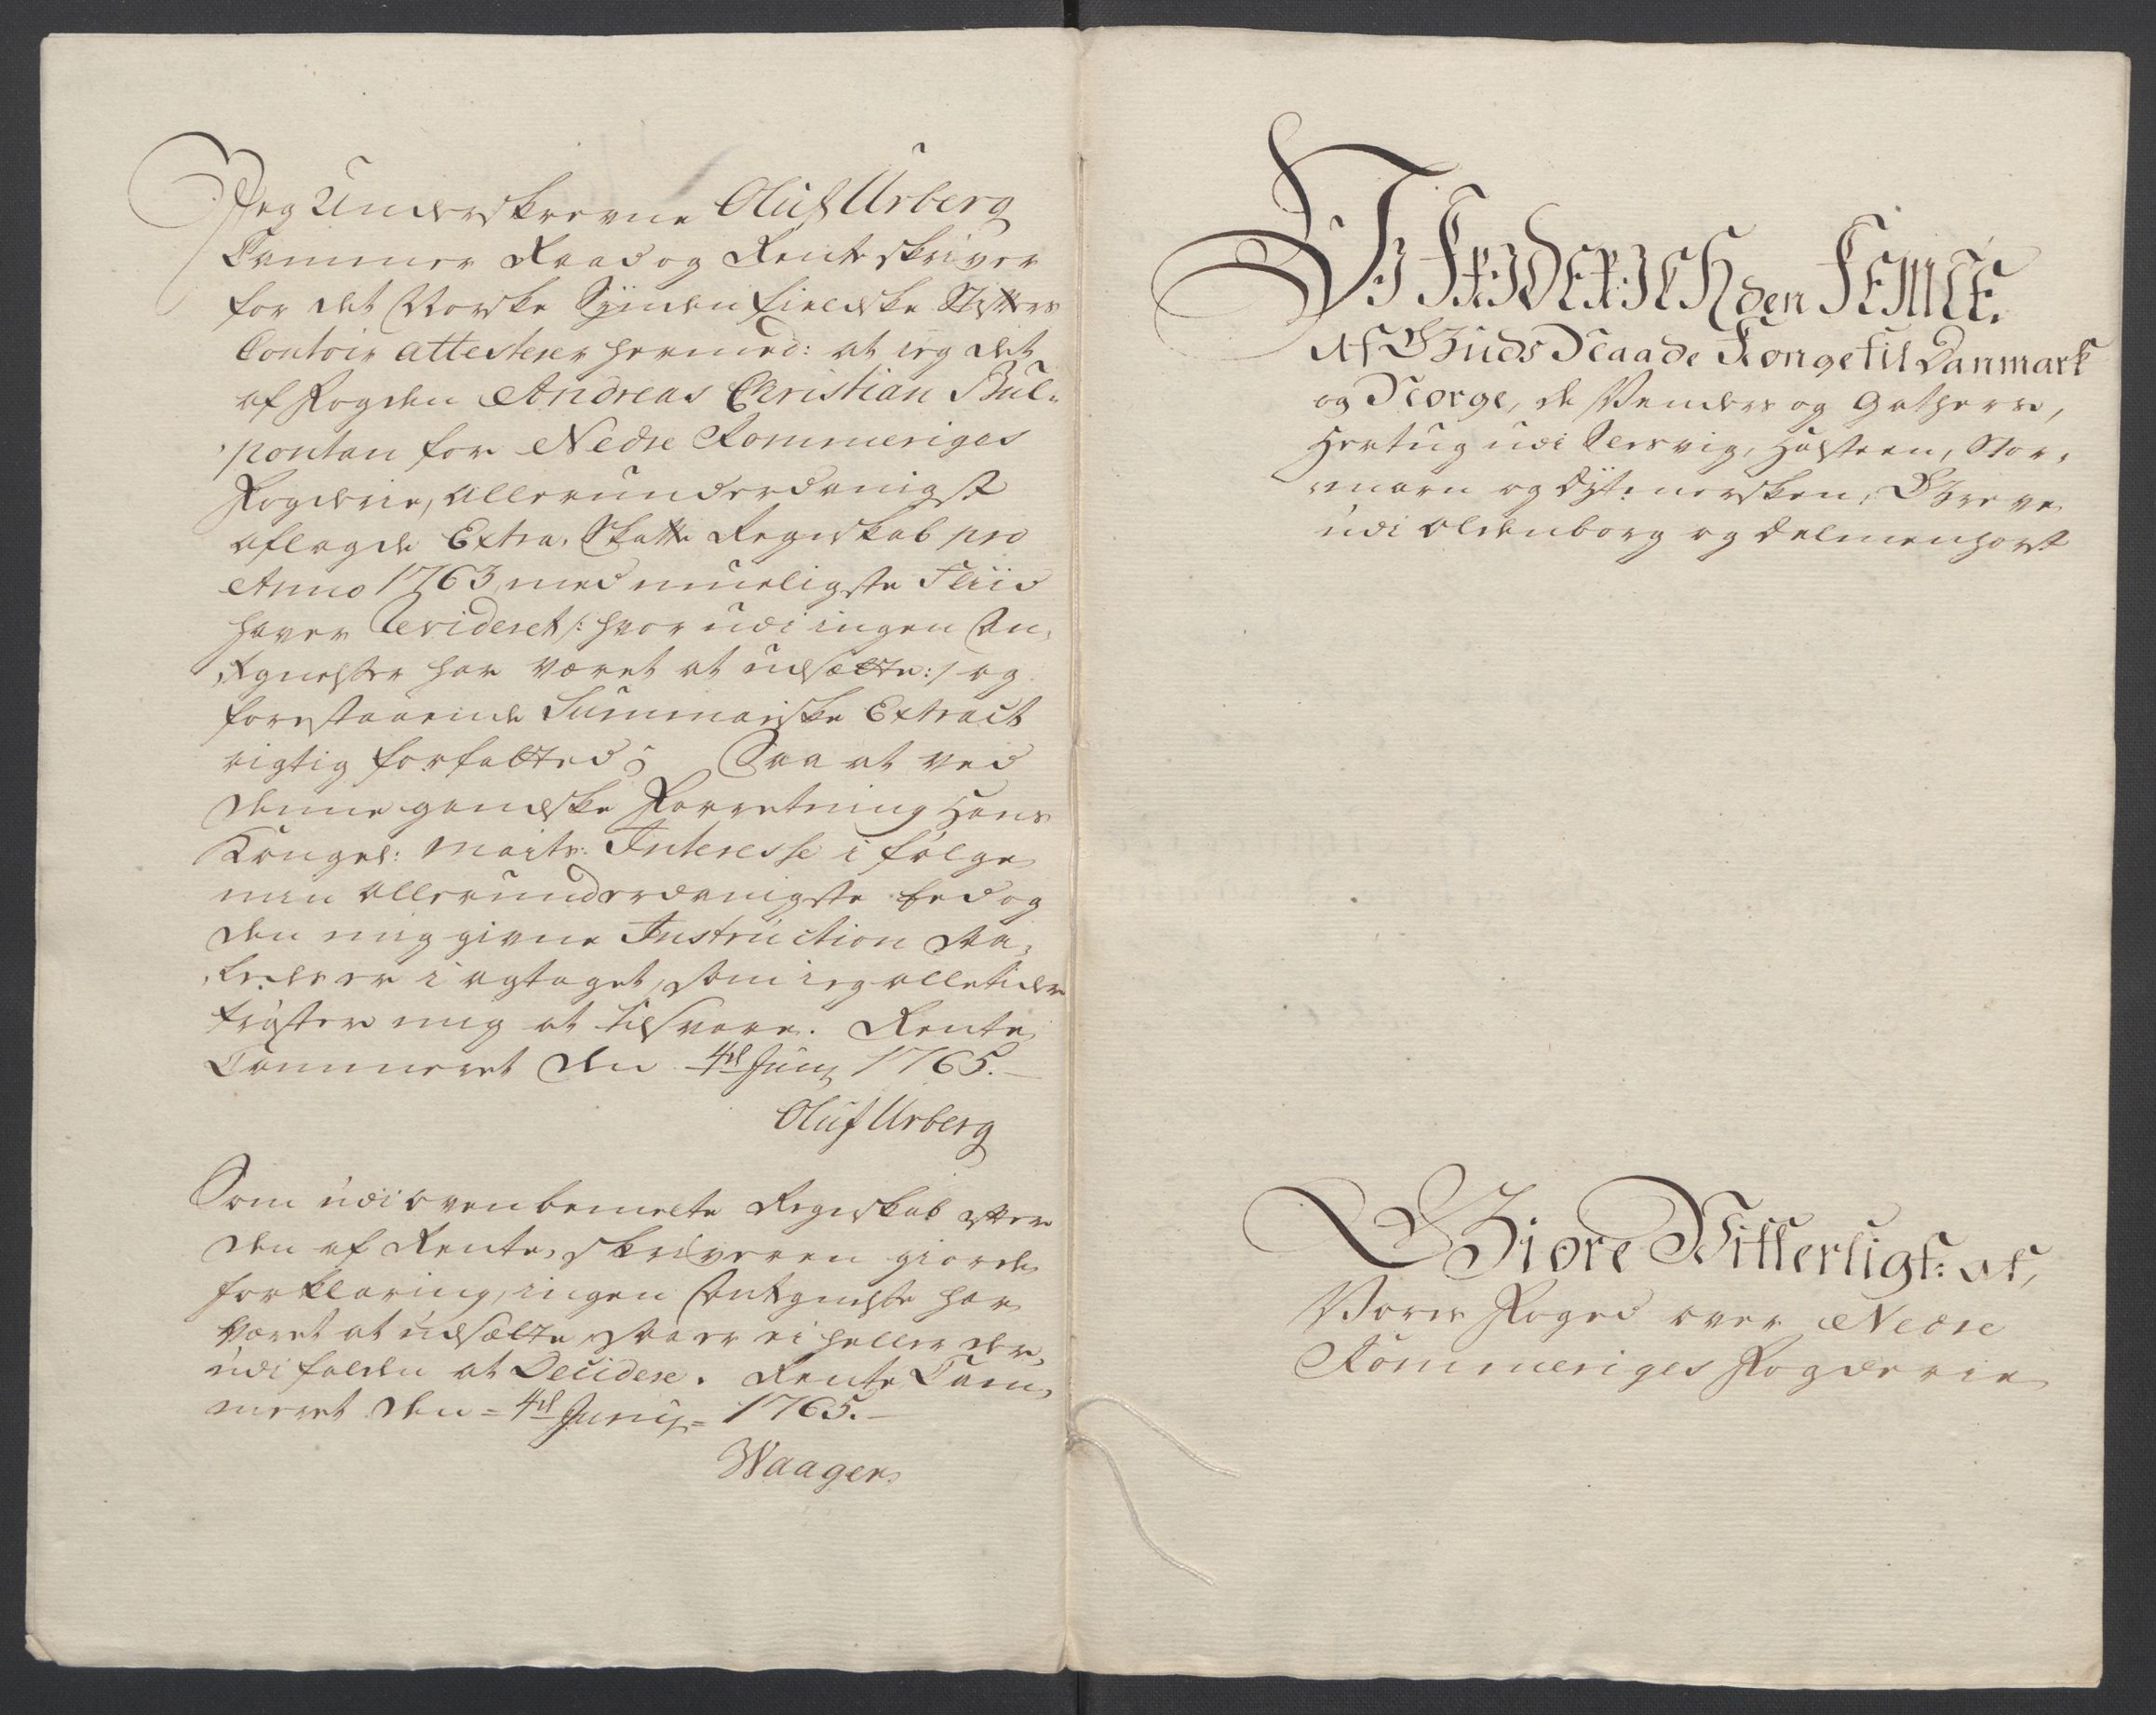 Jeg Underskrevne Oluf Urberg
Cammer Raad og Renteskriver
for det Norske Synden fieldske
Contoir attesterer hermed: at jeg det
af Fogden Andreas Christian Bul-
pontan for Nedre Rommeriges
Fogderie, allerunderdanigst
aflagde Extra. Skatte Regnskab pro
Anno 1763, med mueligste Fliid
haver Revideret /: hvor udi ingen An-
tegnelser har været at udsætte :/ og
forestaaende Summariske Extract
rigtig forfatted; Saa at ved
denne gandske Forretning Hans
Kongel: Maits: Interesse i følge
min allerunderdanigste Eed og
den mig givne Instruction saa-
ledes er i agtaget, som jeg alletider
trøster mig at tilsvare. Rente
Cammeret den 4d Junij 1765.
Oluf Urberg
Som udi ovenbemelte Regnskab efter
den af Rente-skriveren giorde
forklaring, ingen Antegnelse har
været at udsætte, saa er ei heller der-
udi falden at Decidere. Rente Cam-
meret den = 4d Junij = 1765.
Waager
VJ FRIDERICH den FEMTE.
Af Guds Naade Konge til Danmark
og Norge, de Venders og Gothers,
Hertug udi Slesvig, Holsteen, Stor-
marn og Dytmersken, Greve
udi Oldenborg og Delmenhorst
Giøre Vitterligt: At,
Vores Foged over Nedre
Rommeriges Fogderie